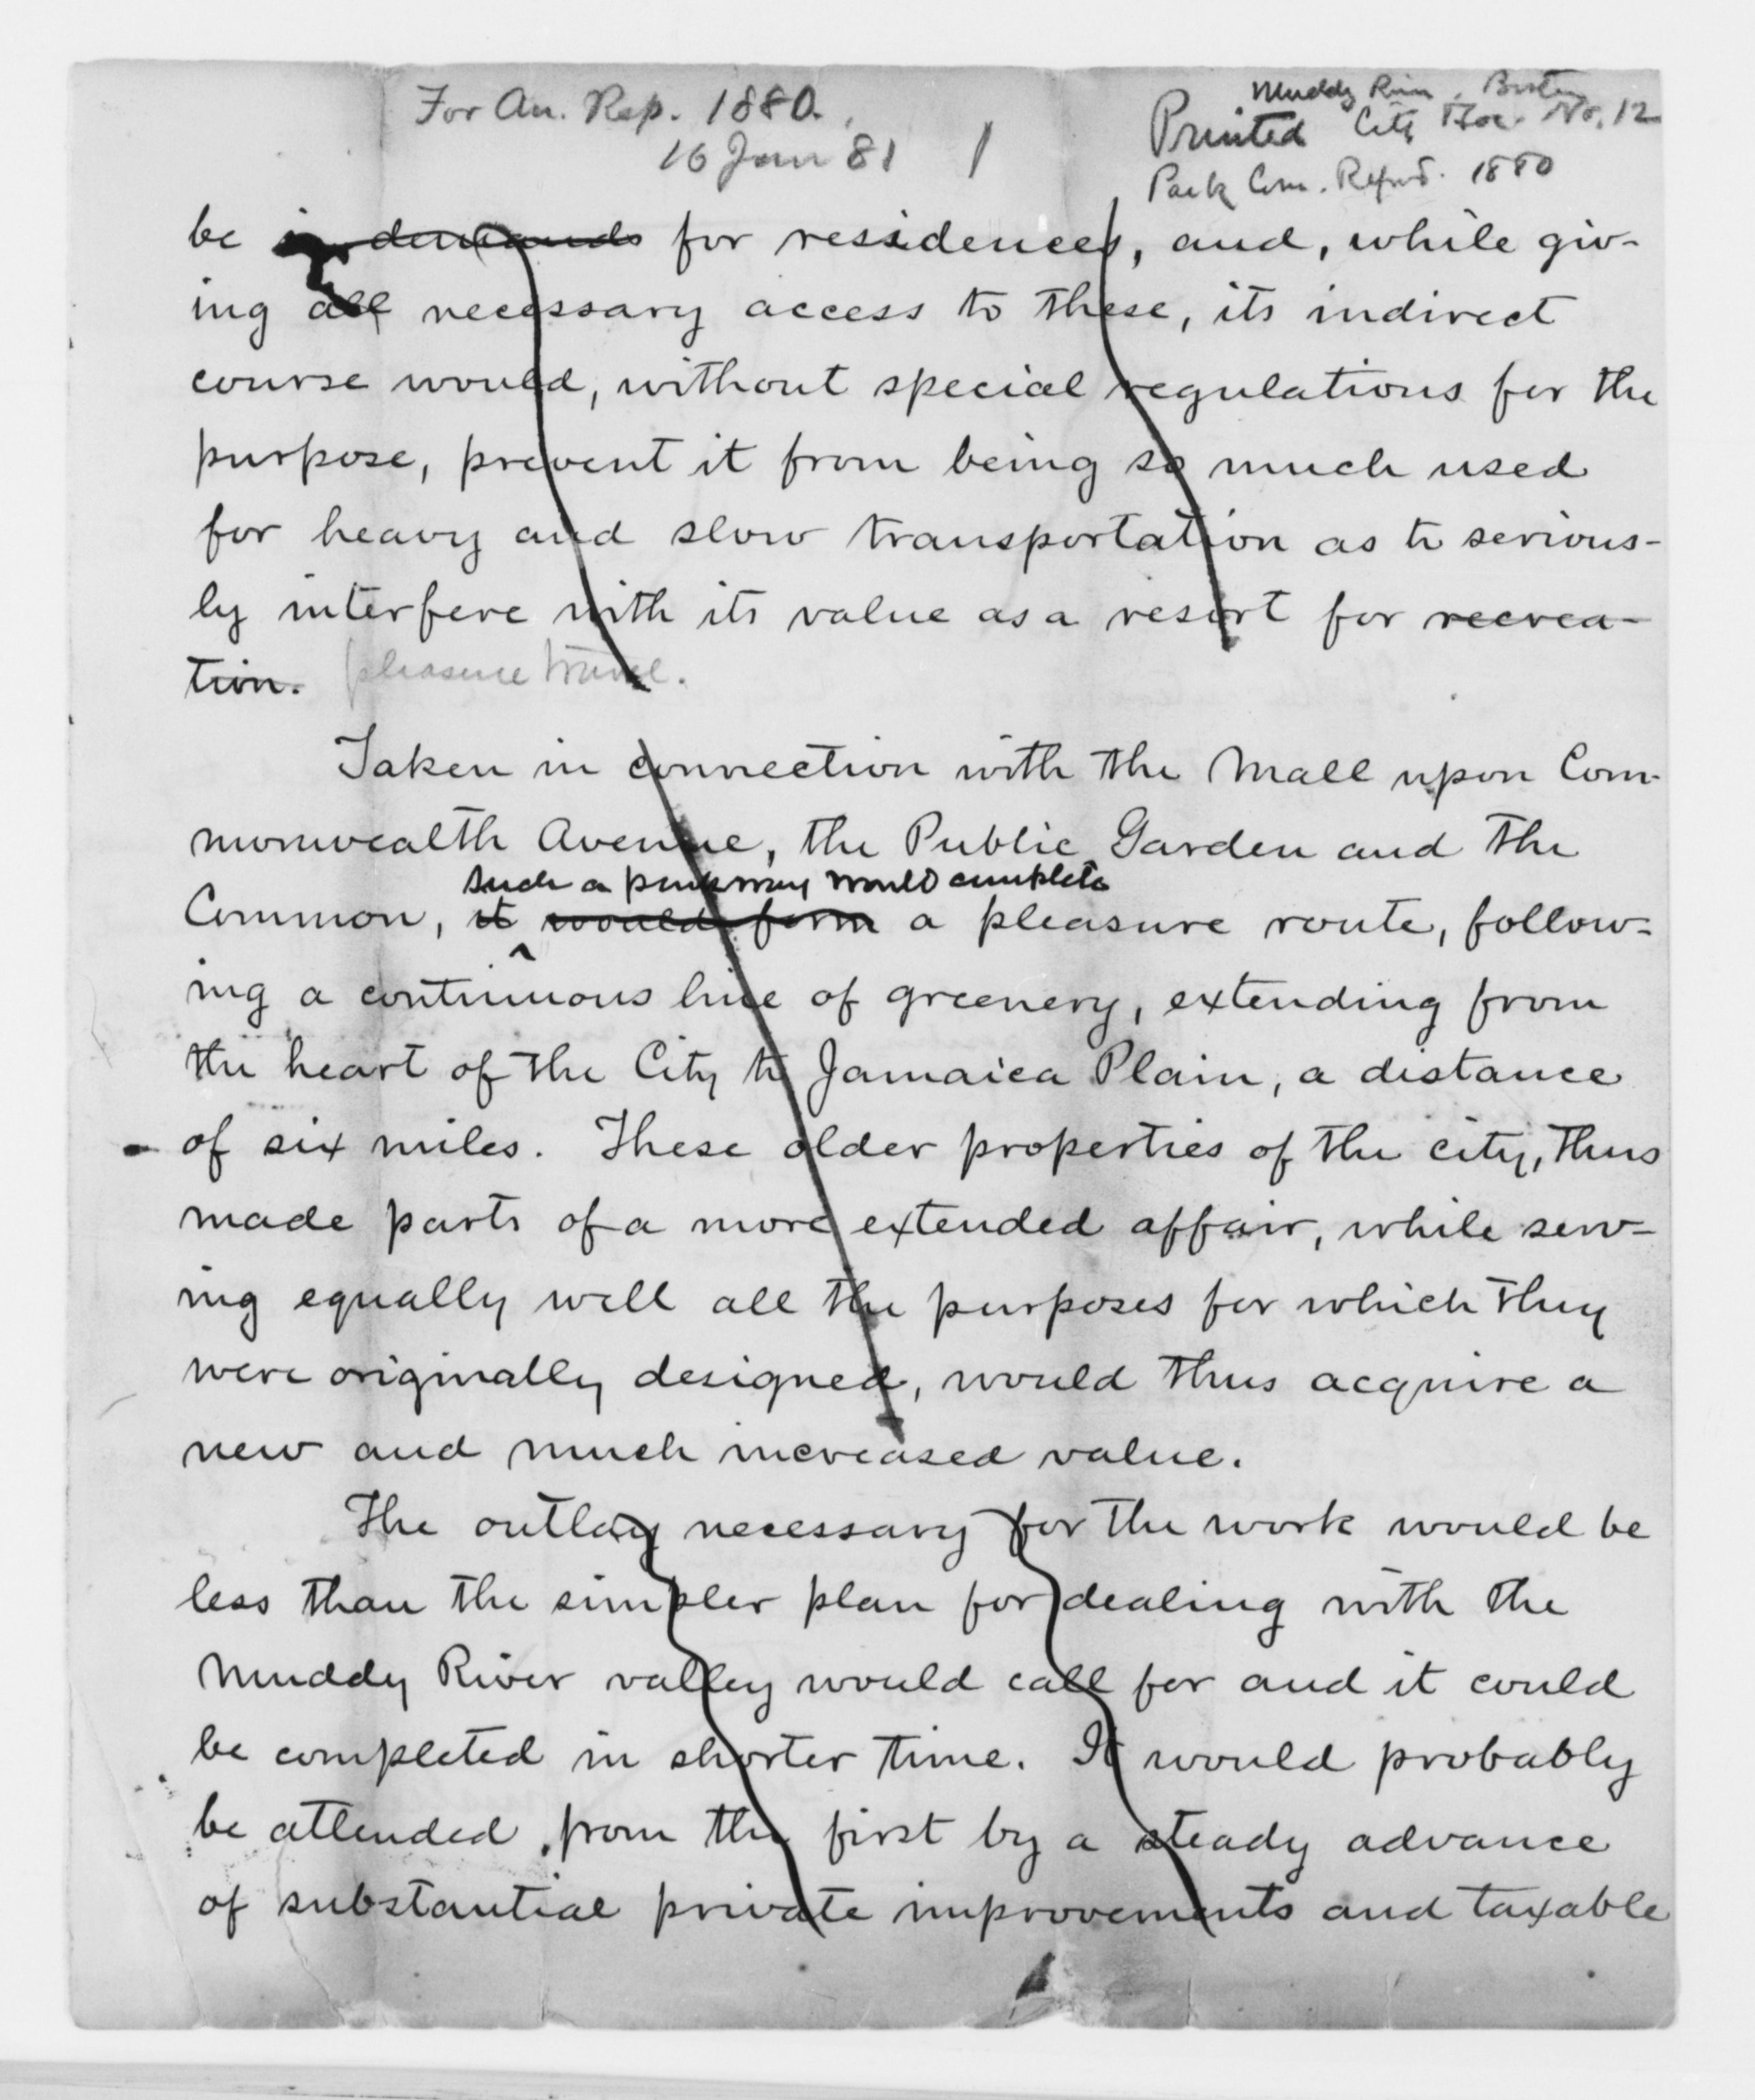 For An. Rep. 1880.
16 Jan 81
1
Muddy River, Boston
Printed City Doc. No. 12
Park Com. Report. 1880
be in demands for residences, and, while giv-
ing all necessary access to these, its indirect
course would, without special regulations for the
purpose, prevent it from being so much used
for heavy and slow transportation as to serious-
ly interfere with its value as a resort for recrea-
tion. pleasure travel.
Taken in connection with the Mall upon Com-
monwealth Avenue, the Public Garden and the
such a parkway would complete
Common, it would form a pleasure route, follow-
ing a continuous line of greenery, extending from
the heart of the City to Jamaica Plain, a distance
of six miles. These older properties of the city, thus
made parts of a more extended affair, while serv-
ing equally well all the purposes for which they
were originally designed, would thus acquire a
new and much increased value.
The outlay necessary for the work would be
less than the simpler plan for dealing with the
Muddy River valley would call for and it could
be completed in shorter time. It would probably
be attended, from the first by a steady advance
of substantial private improvements and taxable